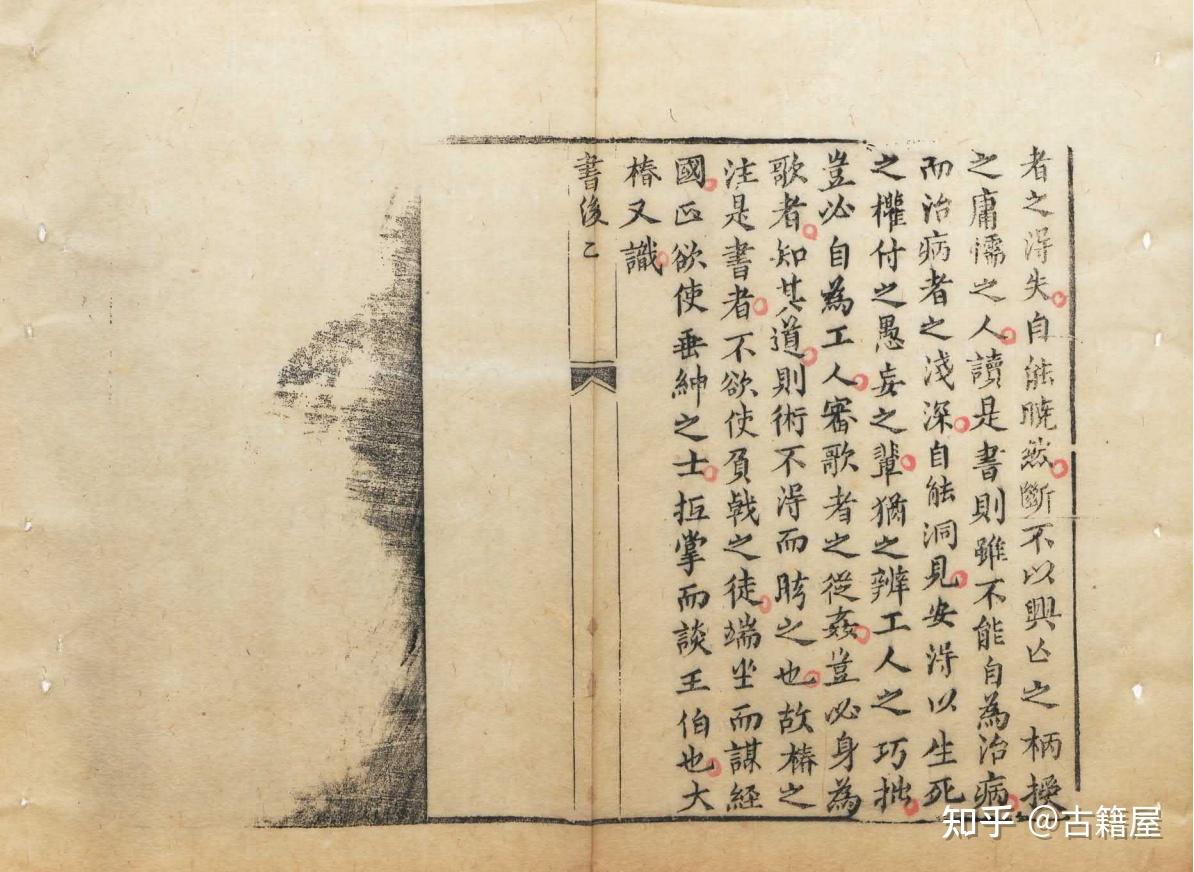 者之淂失自能暁然斷不以興亡之柄操
之庸懦之人讀是書則雖不能自為治病
而治病者之淺深自能洞見安淂以生死
之權付之愚妄之輩猶之辨工人之巧拙
豈必自為工人審歌者之從姦豈必身為
歌者知其道則術不淂而眩之也故椿之
注是書者不欲使負戟之徒端坐而謀經
國正欲使垂紳之士抵掌而談王伯也大
椿又識
書後 二
知乎 @古籍屋